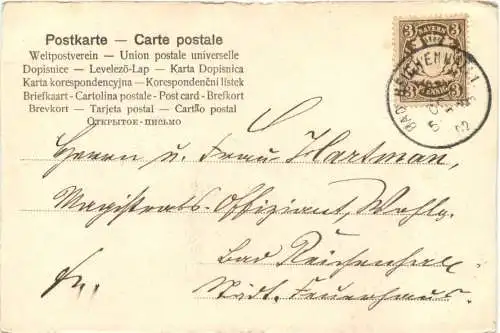 Postkarte — Carte postale
Weltpostverein — Union postale universelle
Dopisnice — Levelező-Lap — Karta Dopisnica
Karta korespondencyjna — Korespondenční lístek
Briefkaart - Cartolina postale - Post card - Brefkort
Brevkort - Tarjeta postal — Cartão postal
Открытое-письмо
3 BAYERN 3
3 PFENNIG 3
BAD REICHENH 1
5 OC
02
Herrn u. Frau Hartman,
Magistrats-Offiziant, Wohlg.
Bad Reichenhall
Städt. Feuerhaus